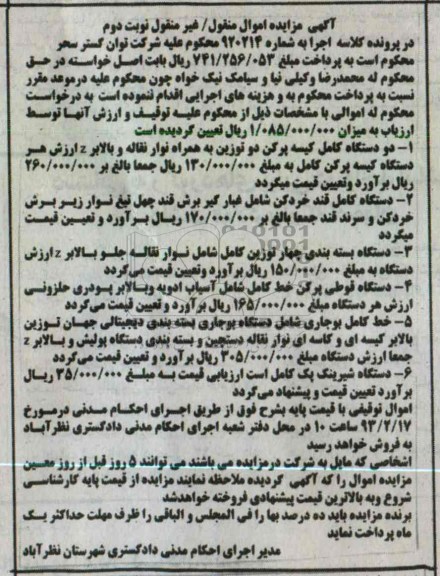 آگهی مزایده اموال منقول/ غیر منقول نوبت دوم
در پرونده کلاسه اجرا به شماره ۹۲۰۲۱۴ محکوم علیه شرکت توان گستر سحر
محکوم است به پرداخت مبلغ ۷۴۱/۲۵۶/۰۵۳ ریال بابت اصل خواسته در حق
محکوم له محمدرضا وکیلی نیا و سیامک نیک خواه چون محکوم علیه درموعد مقرر
نسبت به پرداخت محکوم به و هزینه های اجرایی اقدام ننموده است به درخواست
محکوم له اموالی با مشخصات ذیل از محکوم علیه توقیف و ارزش آنها توسط
ارزیاب به میزان ۱/۰۸۵/۰۰۰/۰۰۰ ریال تعیین گردیده است
۱- دو دستگاه کامل کیسه پرکن دو توزین به همراه نوار نقاله و بالابر z ارزش هر
دستگاه کیسه پرکن کامل به مبلغ ۱۳۰/۰۰۰/۰۰۰ ریال جمعا بالغ بر ۲۶۰/۰۰۰/۰۰۰
ریال برآورد وتعیین قیمت میگردد
۲- دستگاه کامل قند خردکن شامل غبار گیر برش قند چهل تیغ نوار زیر برش
خردکن و سرند قند جمعا بالغ بر ۱۷۰/۰۰۰/۰۰۰ ریال برآورد و تعیین قیمت
میگردد
۳- دستگاه بسته بندی چهار توزین کامل شامل نوار نقاله جلو بالابر z ارزش
دستگاه به مبلغ ۱۵۰/۰۰۰/۰۰۰ ریال برآورد وتعیین قیمت می گردد
۴- دستگاه قوطی پرکن خط کامل شامل آسیاب ادویه وبالابر پودری حلزونی
ارزش هر دستگاه مبلغ ۱۶۵/۰۰۰/۰۰۰ ریال برآورد و تعیین قیمت می گردد
۵- خط کامل بوجاری شامل دستگاه بوجاری بسته بندی دیجیتالی جهان توزین
بالابر کیسه ای و کاسه ای نوار نقاله دستچین و بسته بندی دستگاه پولیش و بالابر z
جمعا ارزش دستگاه مبلغ ۳۰۵/۰۰۰/۰۰۰ ریال برآورد و تعیین قیمت می گردد
۶- دستگاه شیرینگ پک کامل است ارزیابی قیمت به مبلغ ۳۵/۰۰۰/۰۰۰ ریال
برآورد تعیین قیمت و پیشنهاد می گردد
اموال توقیفی با قیمت پایه بشرح فوق از طریق اجرای احکام مدنی درمورخ
۹۳/۲/۱۷ ساعت ۱۰ در محل دفتر شعبه اجرای احکام مدنی دادگستری نظرآباد
به فروش خواهد رسید
اشخاصی که مایل به شرکت درمزایده می باشند می توانند ۵ روز قبل از روز معین
مزایده اموال را که آگهی گردیده ملاحظه نمایند مزایده از قیمت پایه کارشناسی
شروع وبه بالاترین قیمت پیشنهادی فروخته خواهدشد
برنده مزایده باید ده درصد بها را فی المجلس و الباقی را ظرف مهلت حداکثر یک
ماه پرداخت نماید
مدیر اجرای احکام مدنی دادگستری شهرستان نظرآباد